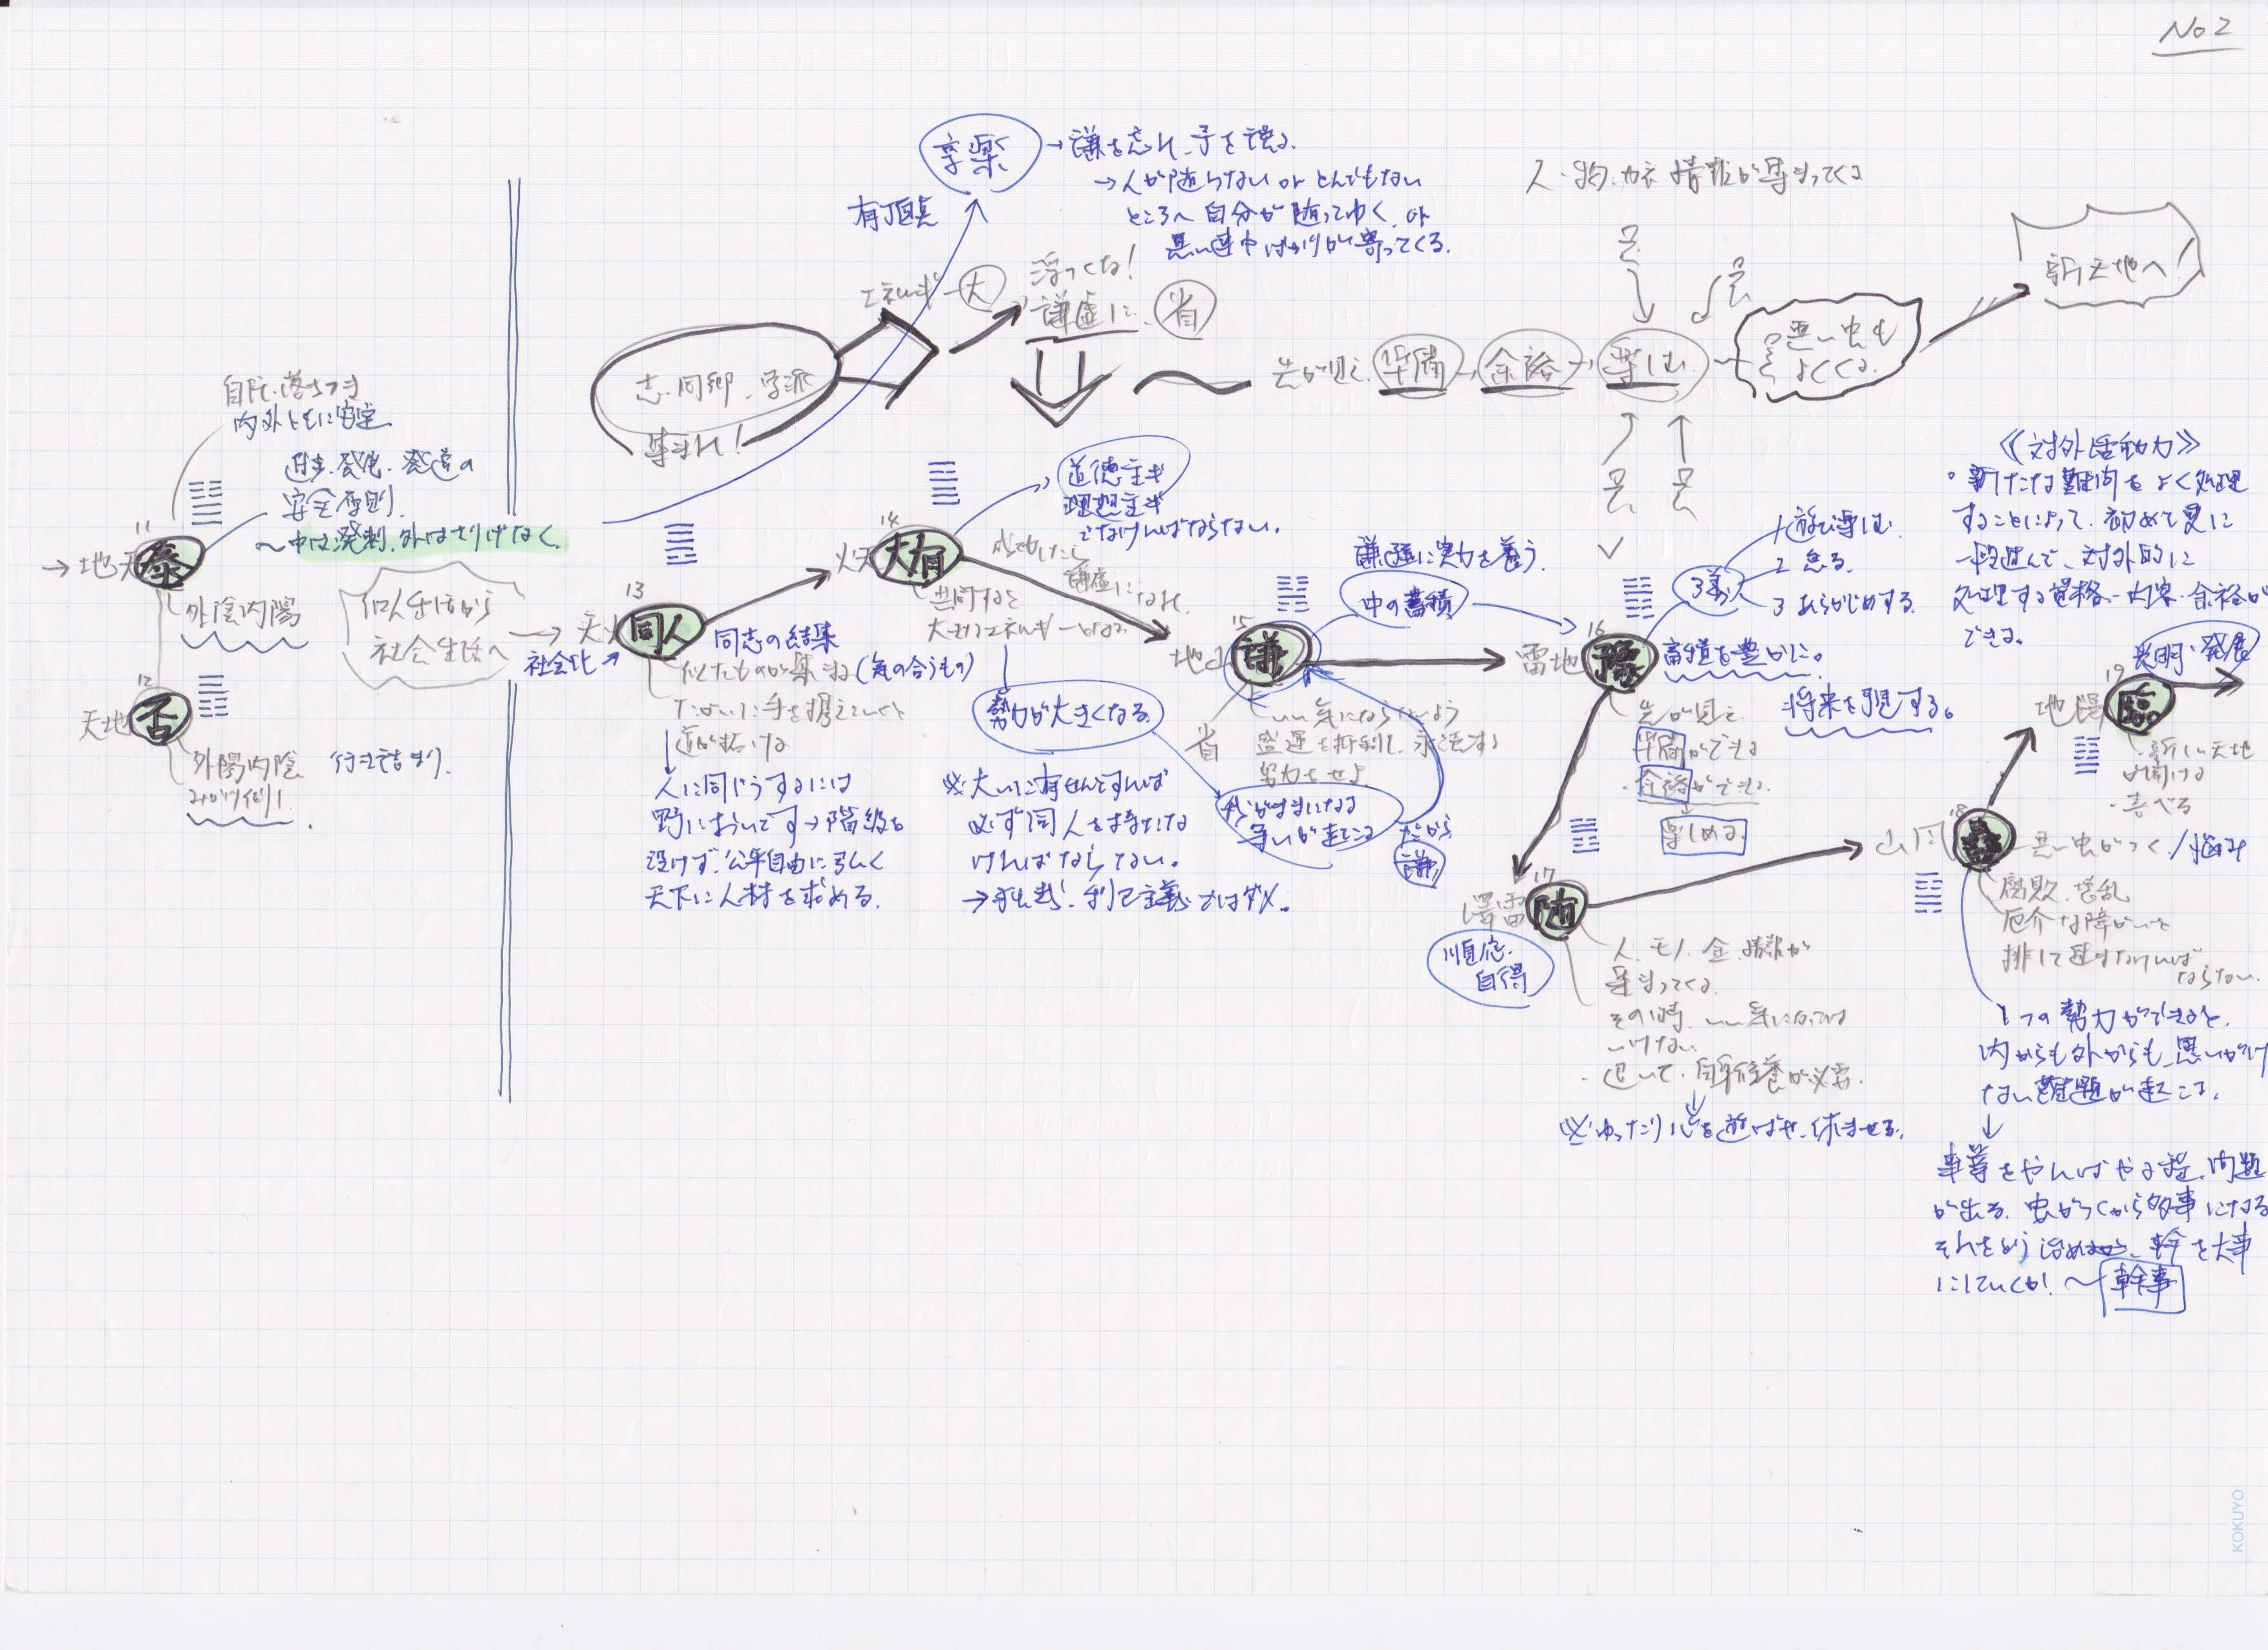 No 2
享楽
→謙を忘れ、予を誤る。
→人が随らない or とんでもない
ところへ自分が随ってゆく or
悪い連中ばかりが寄ってくる。
有頂天
人・物・カネ 情報が集まってくる
エネルギー大
浮つくな!
謙虚に 省
新天地へ!
志・同郷・学派
集まれ!
先が見え 準備 → 余裕 → 楽しむ
悪い虫も
よくくる
自然、落ちつき
内外ともに安定
発展、発達の
安全原則
〜中は溌剌、外はさりげなく
11
→地天 泰
外陰内陽
12
天地 否
外陽内陰 行き詰まり
個人生活から
社会生活へ
社会化
13
天火 同人
同志の結集
似たものが集まる(気の合うもの)
たがいに手を携えていくと
道が拓ける
人に同じうするには
野においてす→階級を
設けず、公平自由に弘く
天下に人材を求める。
14
火天 大有
道徳主義
理想主義
でなければならない。
成功したら
謙虚になれ
共同すると
大きなエネルギーになる
勢力が大きくなる
※大いに有せんとすれば
必ず同人を持たな
ければならない。
→利己主義ではダメ。
我がままになる
争いが起こる
だから
謙
15
地山 謙
省
いい気にならないよう
努力をせよ
謙虚に実力を養う。
中の蓄積
16
雷地 豫
3義
1 遊び楽しむ
2 怠る
3 あらかじめする
蓄積を豊かに。
将来を予見する。
先が見え
準備ができる
余裕ができる
楽しめる
17
澤雷 随
順応・
自得
人、モノ、金、情報が
集まってくる
その時、いい気になっては
いけない
退いて、自己修養が必要。
※ゆったり心を遊ばせ、休ませる。
18
山風 蠱
悪い虫がつく/悩み
腐敗、惑乱
厄介な障がいを
排して進まなければ
ならない
1つの勢力ができると、
内からも外からも、思いがけ
ない難題が起こる。
事業をやればやる程、問題
が出る。虫がつくから多事になる
それをどう治めるか、幹を大事
にしていくか! 〜幹事
《対外活動力》
◦新たな難問をよく処理
することによって、初めて更に
一段進んで、対外的に
処理する資格・内容・余裕が
できる。
光明・発展
19
地澤 臨
新しい天地
が開ける
KOKUYO